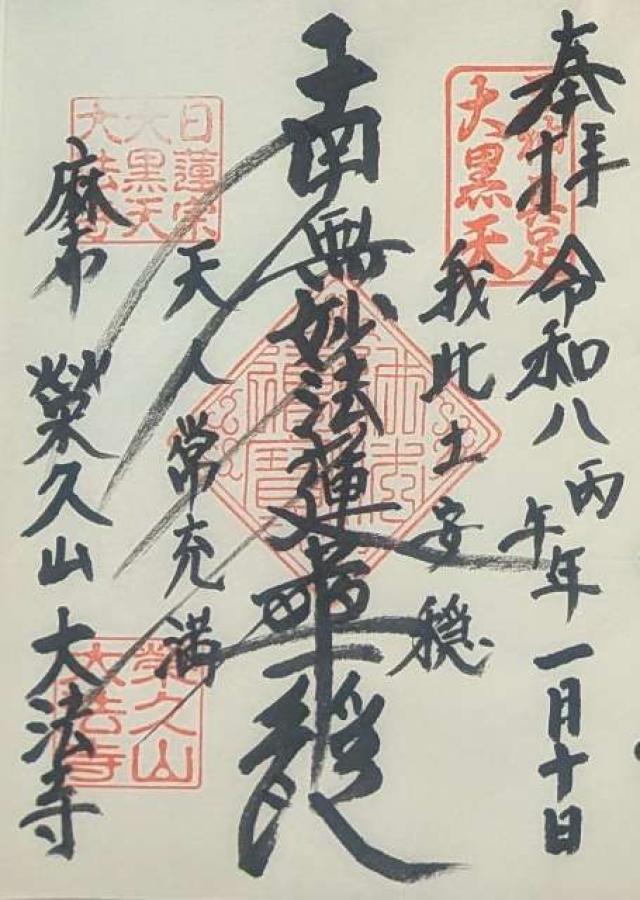 奉拝 令和八丙午年 一月十日
具足
大黒天
我此土安穏
南無妙法蓮華経
天人常充満
日蓮宗
大黒天
大法寺
麻布 榮久山 大法寺
榮久山
大法寺